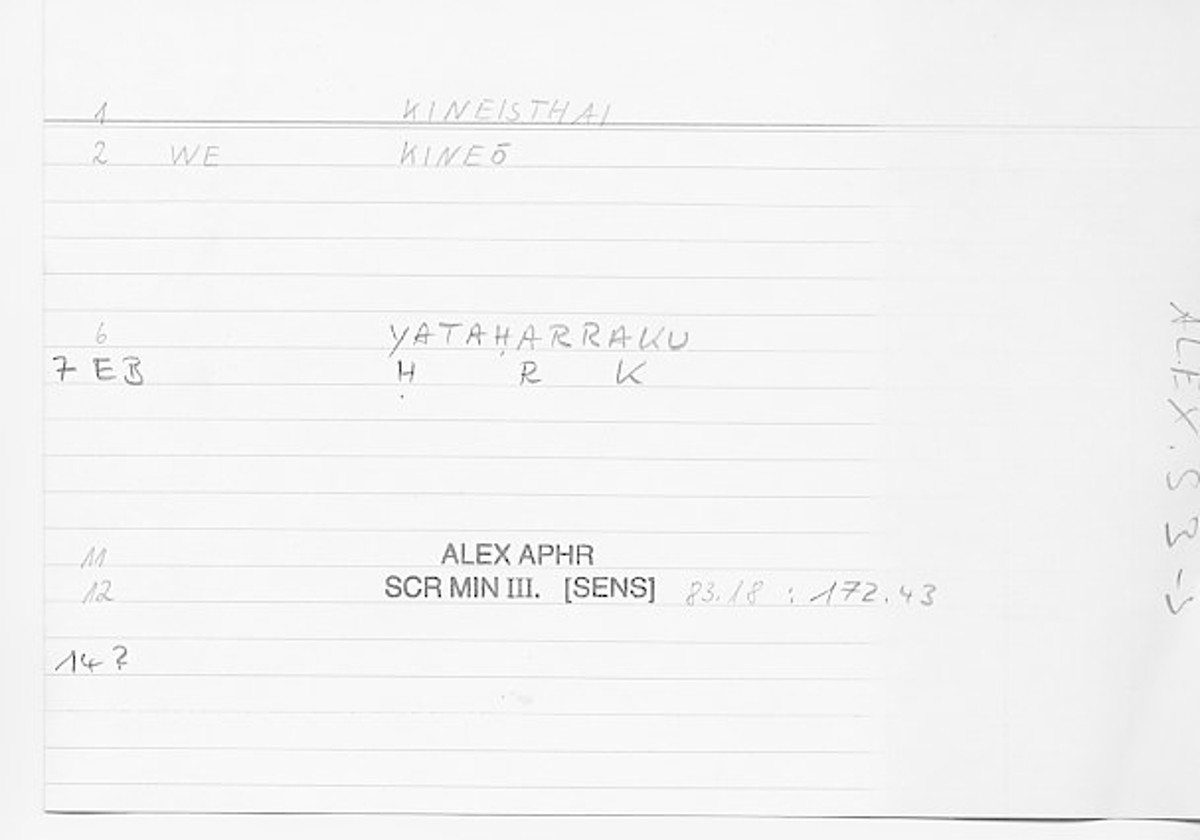 1 KINEISTHAI
2 WE KINEŌ
6 YATAḤARRAKU
7 EB Ḥ R K
11 ALEX APHR
12 SCR MIN III. [SENS] 83.18 : 172.43
14 ?